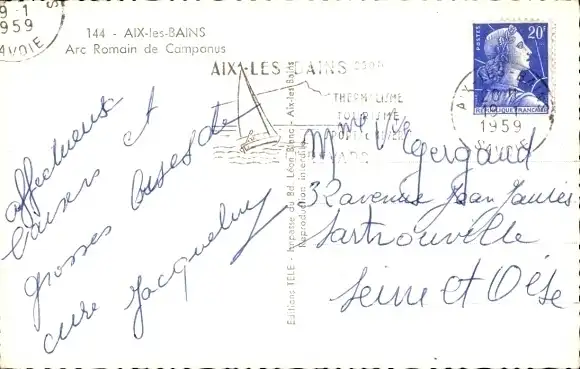 19-1
1959
SAVOIE
144 - AIX-les-BAINS
Arc Romain de Campanus
AIX-LES-BAINS
THERMALISME
TOURISME
POSTES
20F
REPUBLIQUE FRANÇAISE
19-1
1959
affectueux
baisers et
grosses bises de
cure Jacqueline
Editions TELE - Impasse du Bd Léon Blanc - Aix-les-Bains
Reproduction interdite
Mme Vve Gergaud
32 avenue Jean Jaurès
Sartrouville
Seine et Oise